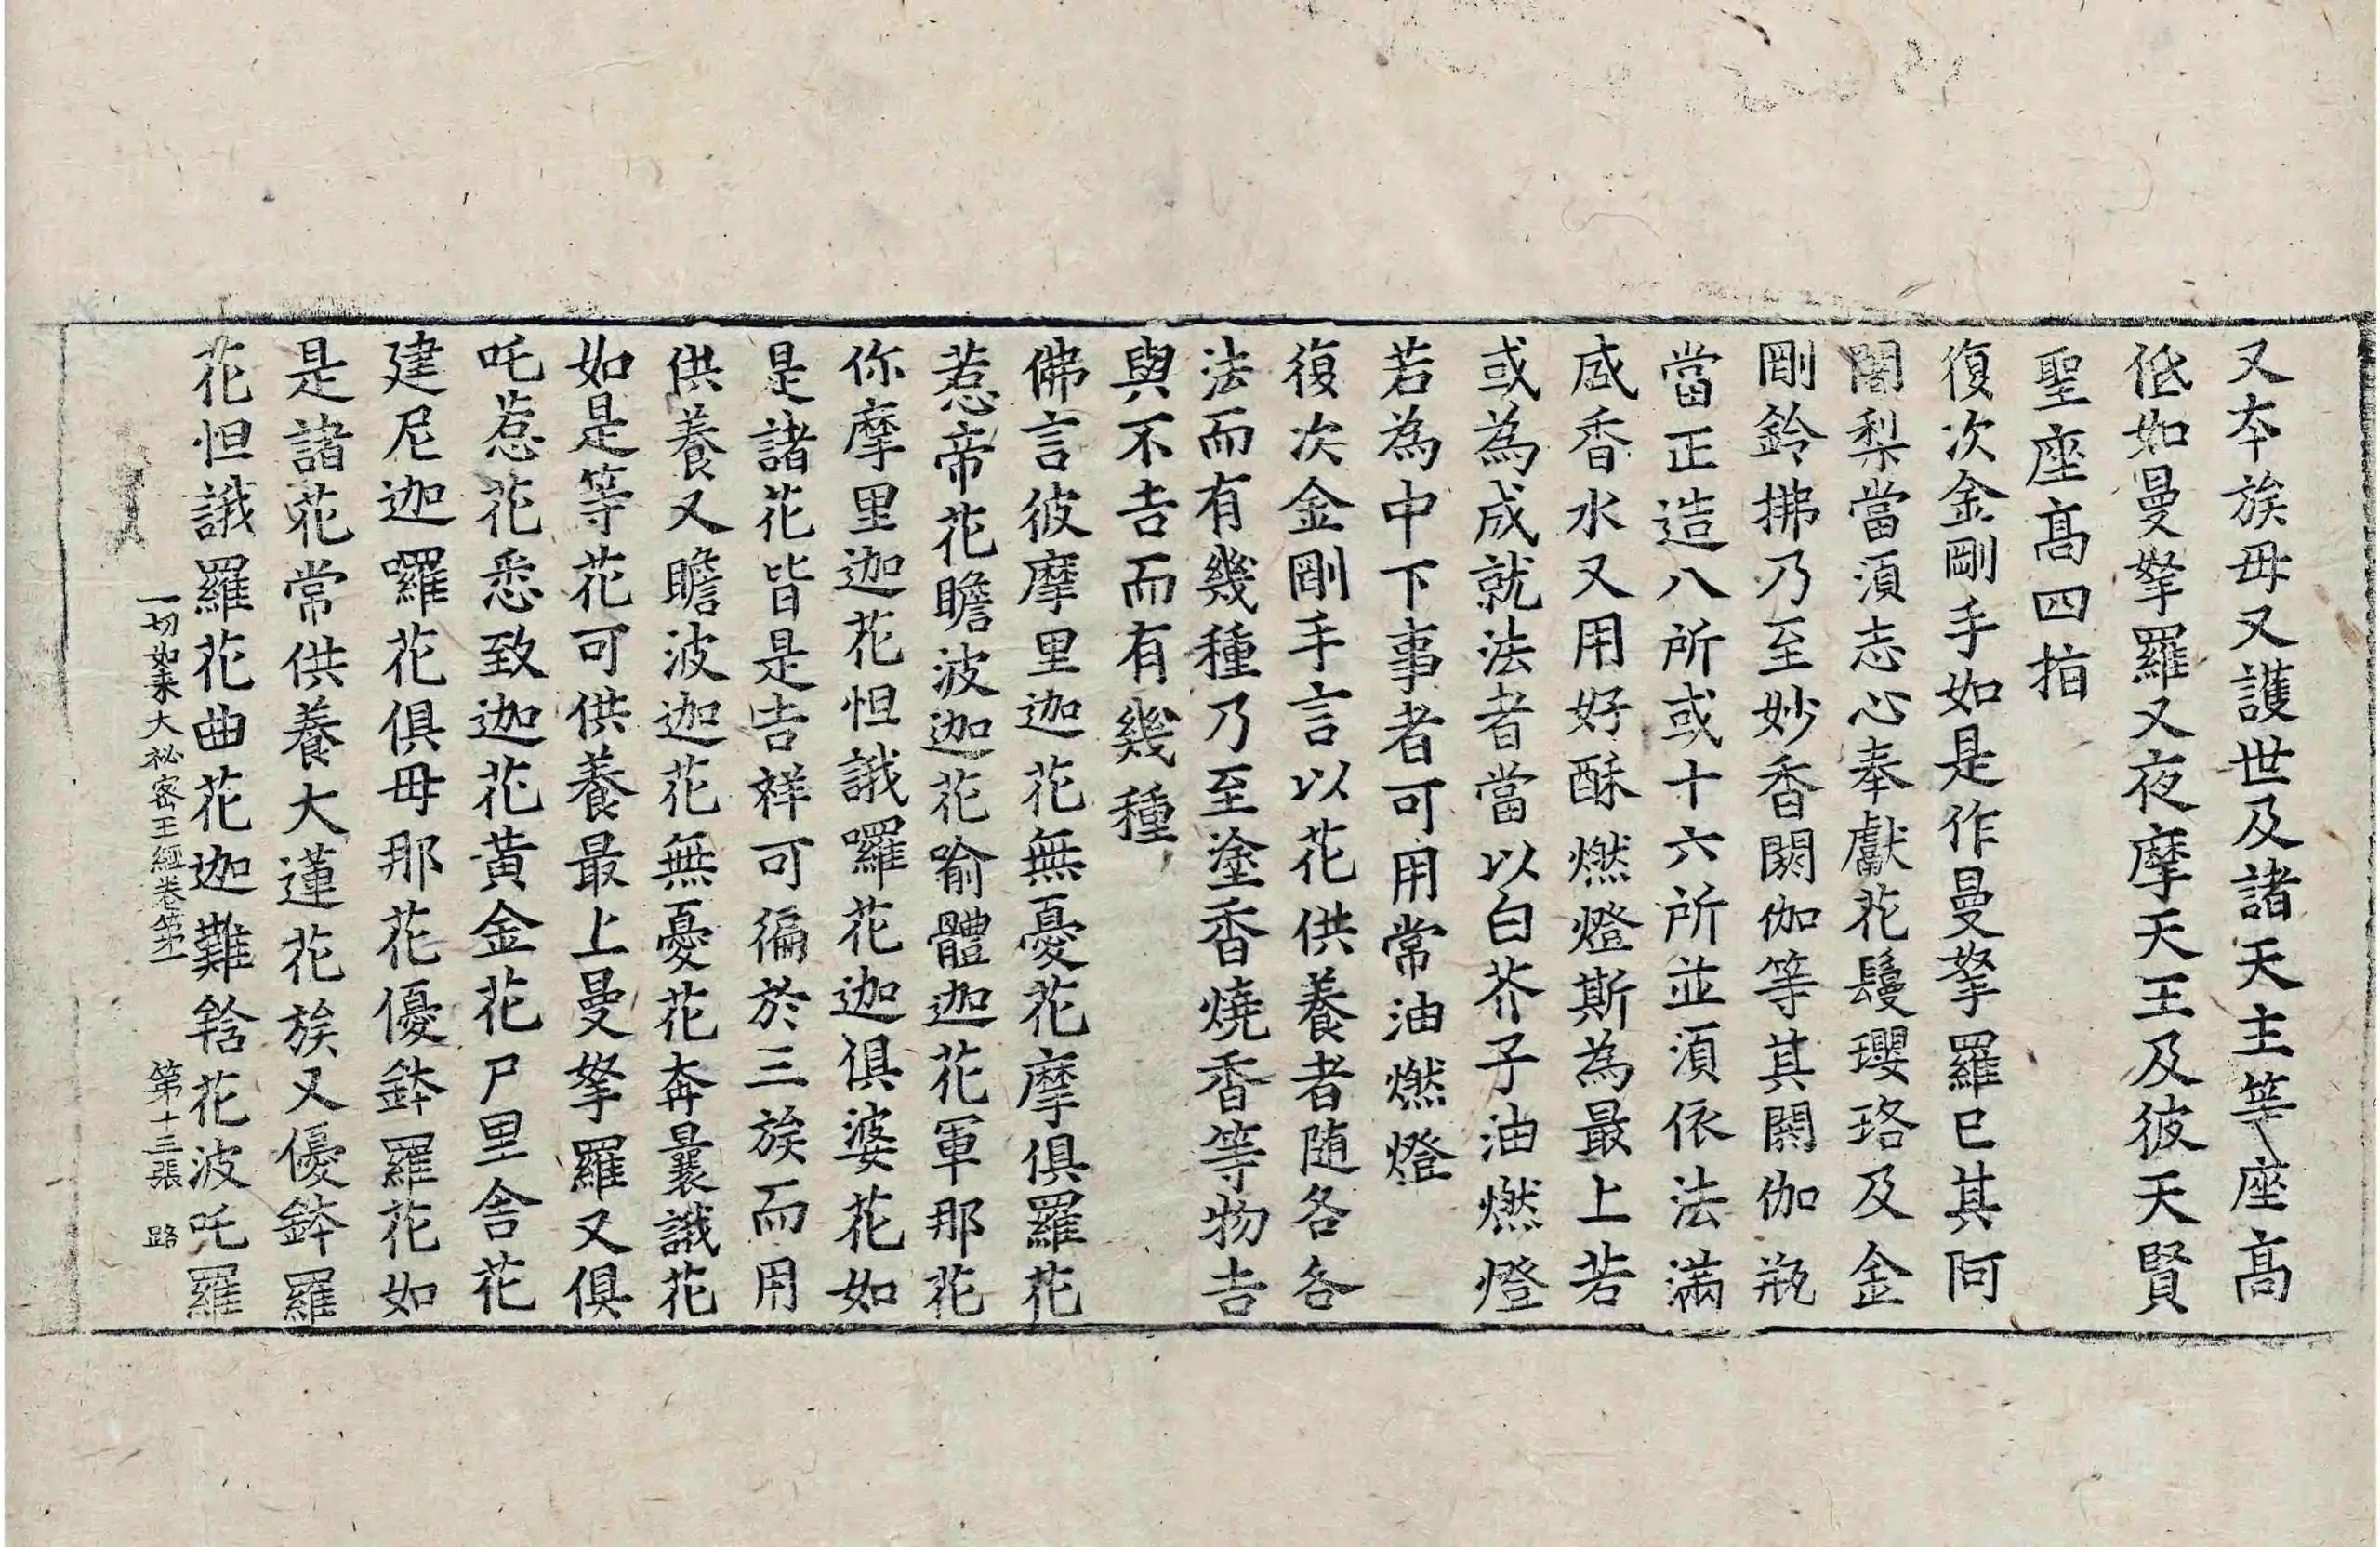 又本族母又護世及諸天主等座高
低如曼拏羅又夜摩天王及彼天賢
聖座高四指
復次金剛手如是作曼拏羅已其阿
闍梨當須志心奉獻花鬘瓔珞及金
剛鈴拂乃至妙香閼伽等其閼伽瓶
當正造八所或十六所並須依法滿
盛香水又用好酥燃燈斯為最上若
或為成就法者當以白芥子油燃燈
若為中下事者可用常油燃燈
復次金剛手言以花供養者随各各
法而有幾種乃至塗香燒香等物吉
與不吉而有幾種
佛言彼摩里迦花無憂花摩俱羅花
惹帝花瞻波迦花喻體迦花軍那花
你摩里迦花怛誐囉花迦俱婆花如
是諸花皆是吉祥可徧於三族而用
供養又瞻波迦花無憂花奔曩誐花
如是等花可供養最上曼拏羅又俱
吒惹花悉致迦花黃金花尸里舍花
建尼迦囉花俱母那花優鉢羅花如
是諸花常供養大蓮花族又優鉢羅
花怛誐羅花曲花迦難鋡花波吒羅
一切如来大祕密王經卷第二 第十三張 路